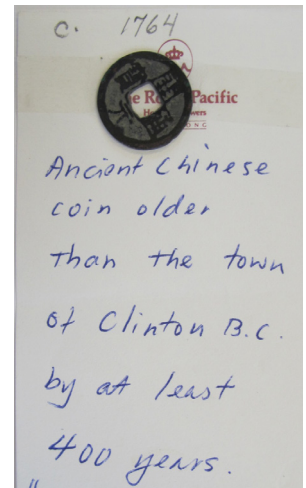 C. 1764
Pacific
Ancient Chinese
coin older
than the town
of Clinton B.C.
by at least
400 years.